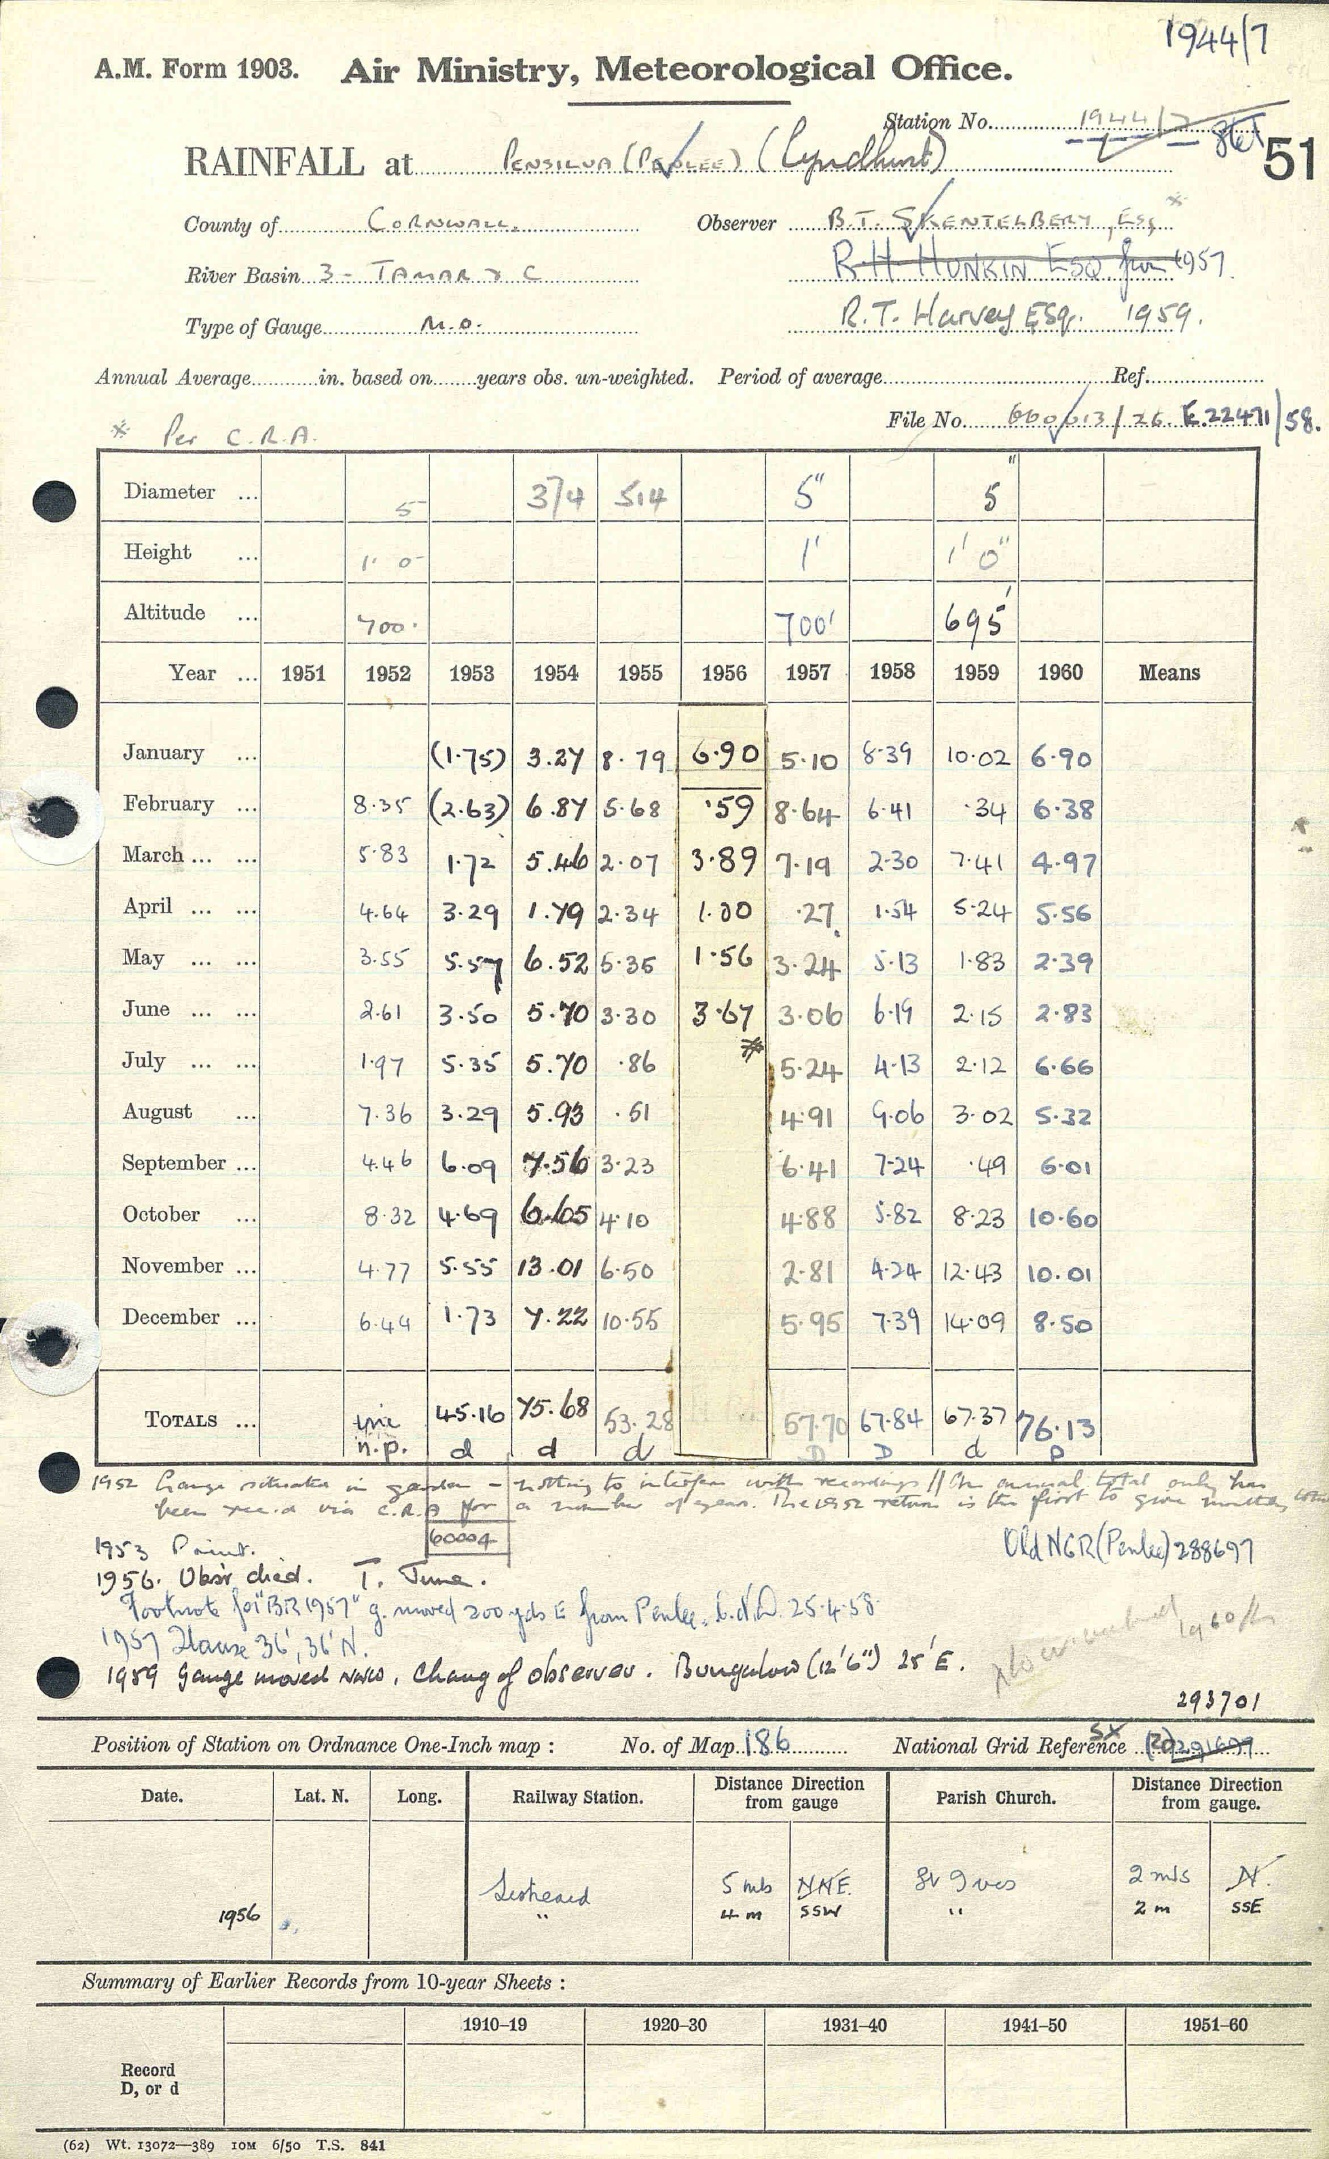 1944/7
A.M. Form 1903. Air Ministry, Meteorological Office.
Station No. 1944/7
51
RAINFALL at PENSILVA (PENLEE) (Lyndhurst)
County of CORNWALL. Observer B.T. SKENTELBERY, ESQ, *
River Basin 3 - TAMAR & C R.H. HUNKIN ESQ from 1957.
Type of Gauge M.O. R.T. Harvey ESq. 1959.
Annual Average in. based on years obs. un-weighted. Period of average Ref.
File No. 660013/26. E.22471/58.
* Per C.R.A.
Diameter ... 5 374 514 5" 5"
Height ... 1' 0 1' 1' 0"
Altitude ... 700. 700' 695'
Year ... 1951 1952 1953 1954 1955 1956 1957 1958 1959 1960 Means
January ... (1.75) 3.27 8.79 6.90 5.10 8.39 10.02 6.90
February ... 8.35 (2.63) 6.87 5.68 .59 8.64 6.41 .34 6.38
March ... ... 5.83 1.72 5.46 2.07 3.89 7.19 2.30 7.41 4.97
April ... ... 4.64 3.29 1.79 2.34 1.00 .27 1.54 5.24 5.56
May ... ... 3.55 5.57 6.52 5.35 1.56 3.24 5.13 1.83 2.39
June ... ... 2.61 3.50 5.70 3.30 3.67 3.06 6.19 2.15 2.83
*
July ... ... 1.97 5.35 5.70 .86 5.24 4.13 2.12 6.66
August ... 7.36 3.29 5.93 .51 4.91 9.06 3.02 5.32
September ... 4.46 6.09 7.56 3.23 6.41 7.24 .49 6.01
October ... 8.32 4.69 6.65 4.10 4.88 5.82 8.23 10.60
November ... 4.77 5.55 13.01 6.50 2.81 4.24 12.43 10.01
December ... 6.44 1.73 7.22 10.55 5.95 7.39 14.09 8.50
TOTALS ... inc 45.16 75.68 53.28 57.70 67.84 67.37 76.13
n.p. d d d D D d P
1952 Gauge situated in garden - nothing to interfere with recordings // The annual total only has
been rec.d via C.R.A for a number of years. The 1952 return is the first to give monthly
60004
1953 Paint.
Old NGR (Penlee) 288697
1956. Obsr died. T. June.
Footnote for "BR 1957" g. moved 200 yds E from Penlee. 25.4.58
1957 House 36', 36' N.
1960
1959 Gauge moved, Change of observer. Bungalow (12'6") 25' E.
293701
Position of Station on Ordnance One-Inch map : No. of Map 186 National Grid Reference SX (20) 291697
Date. Lat. N. Long. Railway Station. Distance Direction from gauge Parish Church. Distance Direction from gauge.
Liskeard 5 mls NNE. St Ives 2 mls N.
1956 " 4 m SSW " 2 m SSE
Summary of Earlier Records from 10-year Sheets :
1910-19 1920-30 1931-40 1941-50 1951-60
Record
D, or d
(62) Wt. 13072—389 10M 6/50 T.S. 841